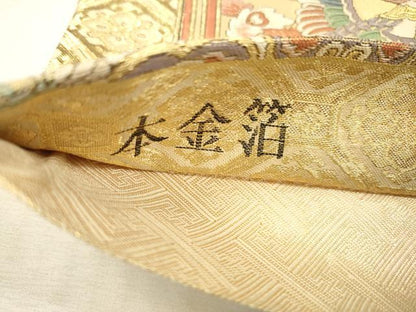 本金箔